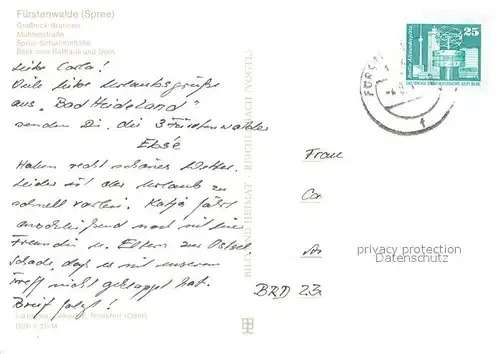 Fürstenwalde (Spree)
Gaullnick-Brunnen
Mühlenstraße
Spree-Schwimmhalle
Blick vom Rathaus und Dom
25
Berlin, Alexanderplatz
DEUTSCHE DEMOKRATISCHE REPUBLIK
Liebe Carla!
Viele liebe Urlaubsgrüße
aus „Bad Heideland"
senden Dir die 3 Fürstenwalder
Ebsé
Haben recht schönes Wetter.
Leider ist der Urlaub zu
schnell vorbei. Katja fährt
anschließend noch mit einer
Freundin u. Eltern zur Ostsee.
Schade, daß es mit unserem
Treff nicht geklappt hat.
Brief folgt!
Frau
Ca
An
BRD 23
privacy protection
Datenschutz
BILD UND HEIMAT REICHENBACH (VOGTL)
Frankfurt (Oder)